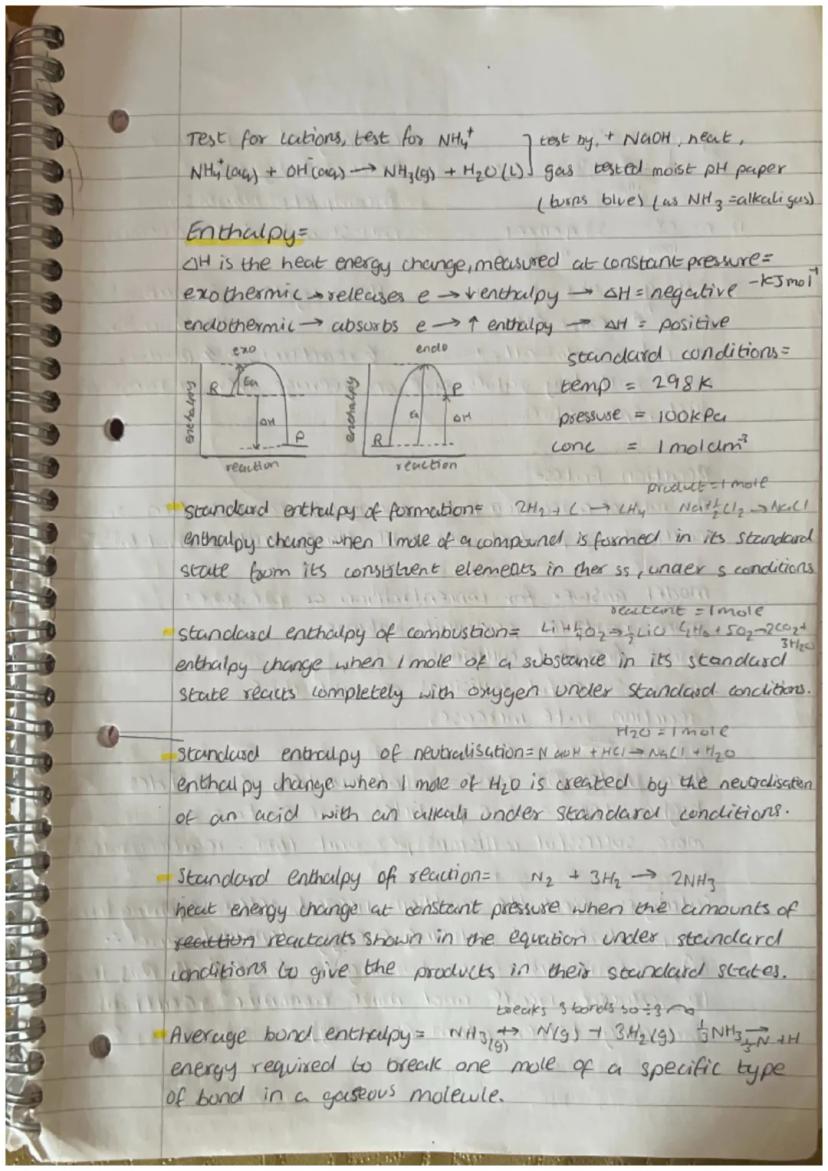 Test for cations, test for NH₄⁺ ] test by, + NaOH, heat,
NH₄⁺(aq) + OH⁻(aq) → NH₃(g) + H₂O(L) ] gas tested moist pH paper
(turns blue) (as NH₃ = alkali gas)
Enthalpy=
ΔH is the heat energy change, measured at constant pressure=
exothermic → releases e → ↓enthalpy → ΔH = negative -KJmol⁻¹
endothermic → absorbs e → ↑ enthalpy → ΔH = positive
exo endo standard conditions=
enthalpy R Ea ΔH P reaction
enthalpy R Ea P ΔH reaction
temp = 298K
pressure = 100kPa
conc = 1moldm⁻³
product = 1 mole
standard enthalpy of formation= 2H₂ + C → CH₄ Na+½Cl₂→NaCl
enthalpy change when 1 mole of a compound is formed in its standard
state from its constituent elements in ther ss, under s conditions
reactant = 1 mole
standard enthalpy of combustion= C₄H₁₀ + 5O₂→2CO₂+
3H₂O
enthalpy change when 1 mole of a substance in its standard
state reacts completely with oxygen under standard conditions.
H₂O = 1 mole
standard entralpy of neutralisation= NaOH + HCl → NaCl + H₂O
enthalpy change when 1 mole of H₂O is created by the neutralisation
of an acid with an alkali under standard conditions.
standard enthalpy of reaction= N₂ + 3H₂ → 2NH₃
heat energy change at constant pressure when the amounts of
reaction reactants shown in the equation under standard
conditions to give the products in their standard states.
breaks 3 bonds so ÷3
Average bond enthalpy= NH₃(g) ↔ N(g) + 3H₂(g) ⅓NH₃ → ⅓N + H
energy required to break one mole of a specific type
of bond in a gaseous molecule.